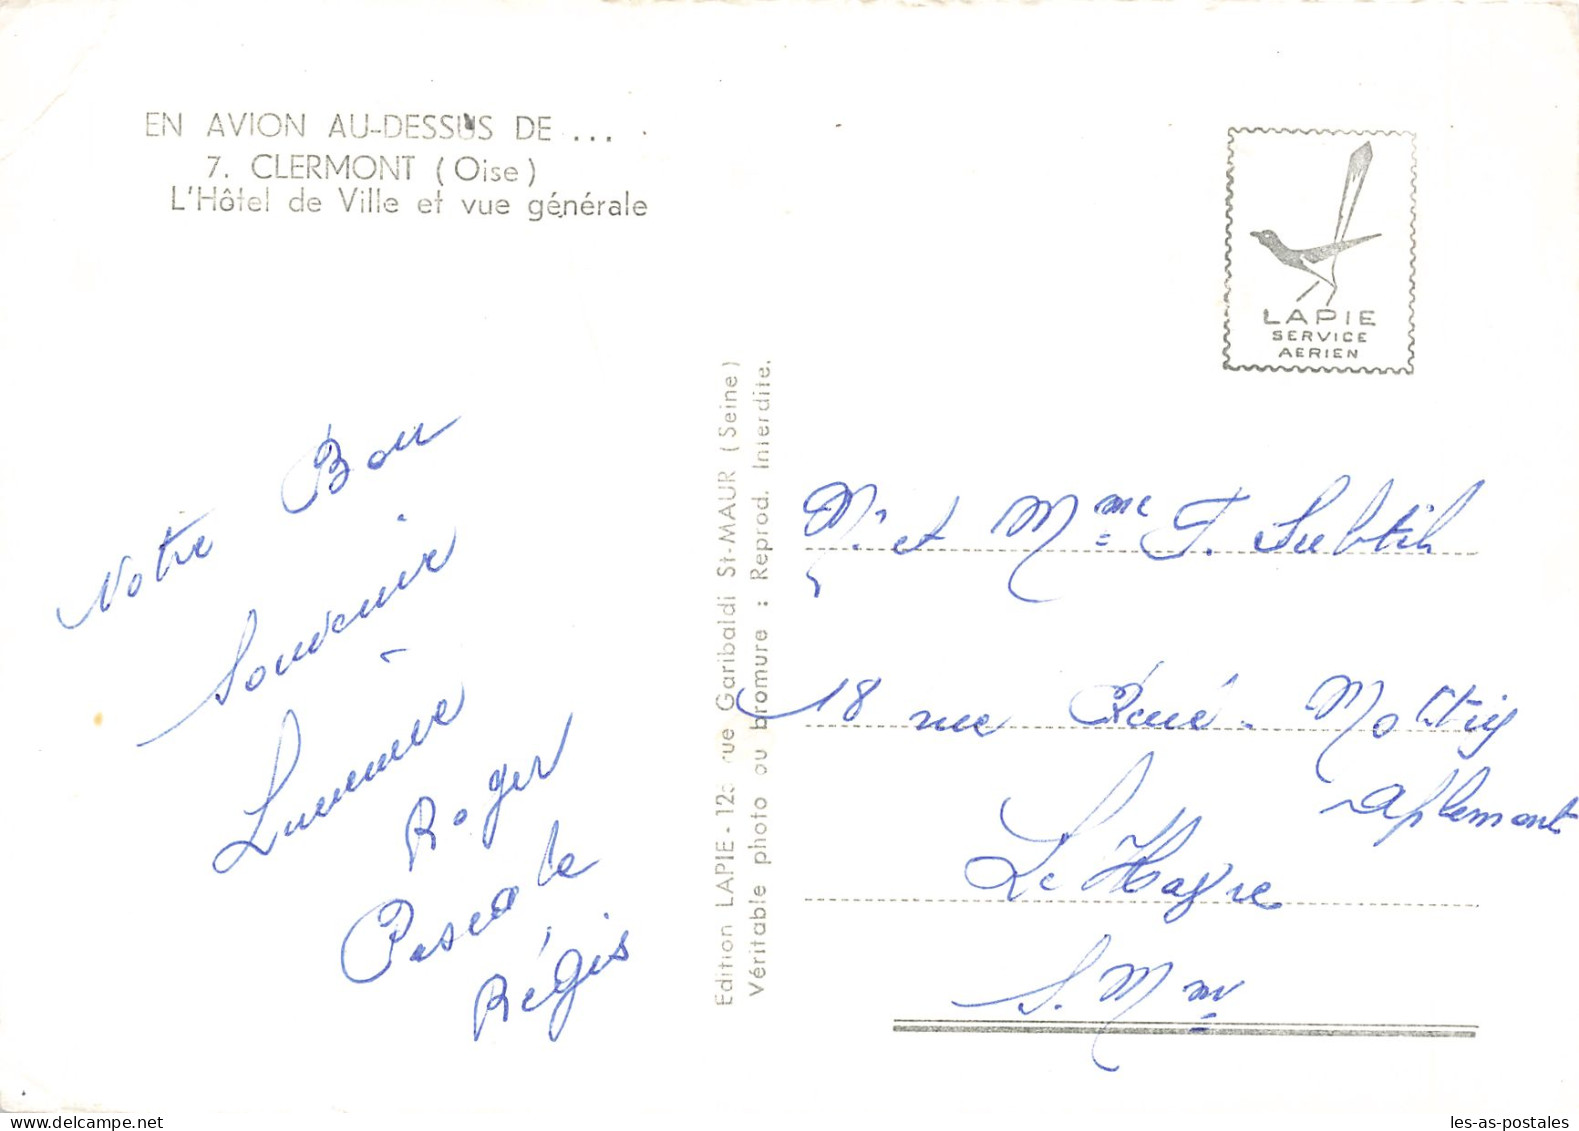 EN AVION AU-DESSUS DE ...
7. CLERMONT (Oise)
L'Hôtel de Ville et vue générale
LAPIE
SERVICE
AERIEN
Notre Bon
Souvenir
Roger
Pascale
Régis
Edition LAPIE - rue Garibaldi St-MAUR (Seine)
Véritable photo ou bromure : Reprod. Interdite.
Mr et Mme
18 rue René
Aplemont
Le Havre
S. Mme
delcampe.net
les-as-postales